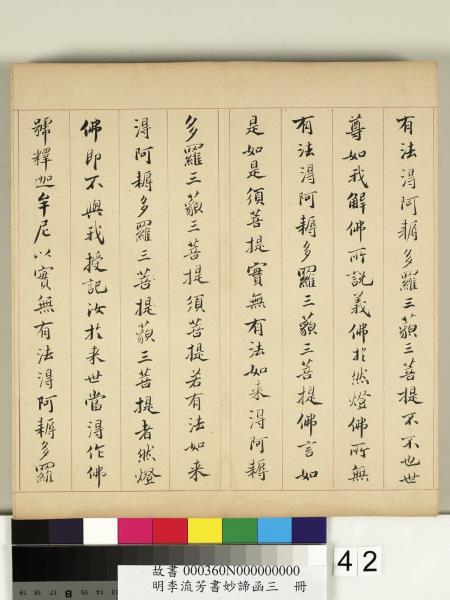 有法得阿耨多羅三藐三菩提不不也世
尊如我解佛所說義佛於然燈佛所無
有法得阿耨多羅三藐三菩提佛言如
是如是須菩提實無有法如來得阿耨
多羅三藐三菩提須菩提若有法如来
得阿耨多羅三菩提藐三菩提者然燈
佛即不與我授記汝於来世當得作佛
號釋迦牟尼以實無有法得阿耨多羅
42
故書 000360N000000000
明李流芳書妙諦函三 冊